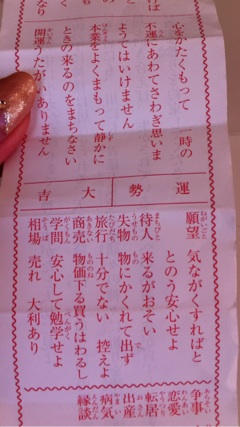 心をかたくもって 一時の
不運にあわてさわぎ思いま
ようてはいけません
本業をよくまもって静かに
ときの来るのをまちなさい
開運うたがいありません
運勢 大吉
願望 気ながくすればと
とのう安心せよ
待人 来るがおそい
失物 物にかくれて出ず
旅行 十分でない 控えよ
商売 物価下る買うはわるし
学問 安心して勉学せよ
相場 売れ 大利あり
争事
恋愛
転居
出産
病気
縁談